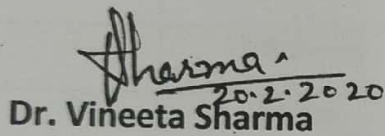 Sharma
20.2.2020
Dr. Vineeta Sharma